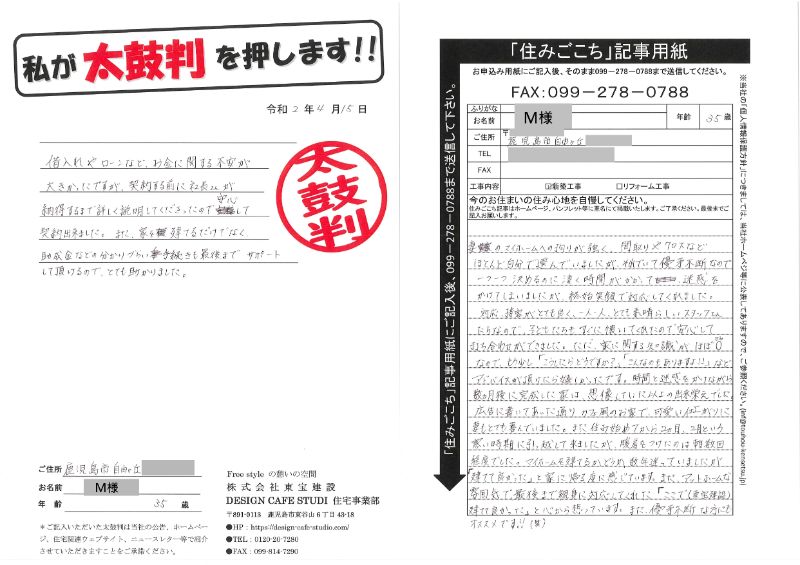 私が 太鼓判 を押します!!
令和 2 年 4 月 15 日
借入れやローンなど、お金に関する不安が
大きかったですが、契約する前に社長さんが
納得するまで詳しく説明してくださったので 安心して
契約出来ました。また、家を建てるだけでなく
助成金などの分かりづらい手続きも最後まで サポート
して頂けるので、とても助かりました。
太鼓判
ご住所 鹿児島市自由ヶ丘
お名前 M様
年 齢 35 歳
＊ご記入いただいた太鼓判は当社の公告、ホームペー
ジ、住宅関連ウェブサイト、ニュースレター等で紹介
させていただきますことをご承諾ください。
Free style の憩いの空間
株 式 会 社 東 宝 建 設
DESIGN CAFE STUDI 住宅事業部
〒891-0113 鹿児島市東谷山 6 丁目 43-18
●HP：https://design-cafe-studio.com/
●TEL：0120-20-7280
●FAX：099-814-7290
「住みごこち」記事用紙にご記入後、099-278-0788まで送信して下さい。
「住みごこち」記事用紙
お申込み用紙にご記入後、そのまま099-278-0788まで送信してください。
FAX：099-278-0788
ふりがな
お名前 M様 年齢 35 歳
ご住所 〒
鹿児島市自由ヶ丘
TEL
FAX
工事内容 ☑新築工事 □リフォーム工事
今のお住まいの住み心地を自慢してください。
住みごこち記事はホームページ、パンフレット等に実名にて掲載いたします。ご了承ください。最後までご
記入お願いします。
のマイホームへの拘りが強く、間取りやクロスなど
ほとんど自分で選んでいましたが、優柔不断なので
一つ一つ決めるのに凄く時間がかかって 迷惑を
かけてしまいましたが、終始笑顔で対応してくれました。
接客がとても良く、一人一人、とても素晴らしいスタッフさん
たちなので、子どもたちもすぐに懐いてくれたので安心して
打ち合わせができました。ただ、家に関する知識がほぼ0
なので、「こうしたらどうですか?」「こんなのもありますよ!」など
アドバイスが頂けたら嬉しかったです。時間と迷惑をかけながら
数ヶ月後に完成した家は、想像していた以上の出来栄えでした。
広告に書いてあった通り カフェ風のお家で、可愛い仕上がりに
妻もとても喜んでいました。また住み始めてから2ヶ月、2月という
寒い時期に引っ越して来ましたが、暖房をつけたのは数回
程度でした。マイホームを建てるかどうか、数年迷っていましたが、
「建てて良かった」と家に満足度に感じています。また、アットホームな
雰囲気で、最後まで親身に対応してくれた、「ここで(東宝建設)
建てて良かった」と心から思っています。また、優柔不断な方にも
オススメです!!(笑)
※当社の「個人情報保護方針」につきましては、当社ホームページ等に公表しておりますので、ご参照ください。